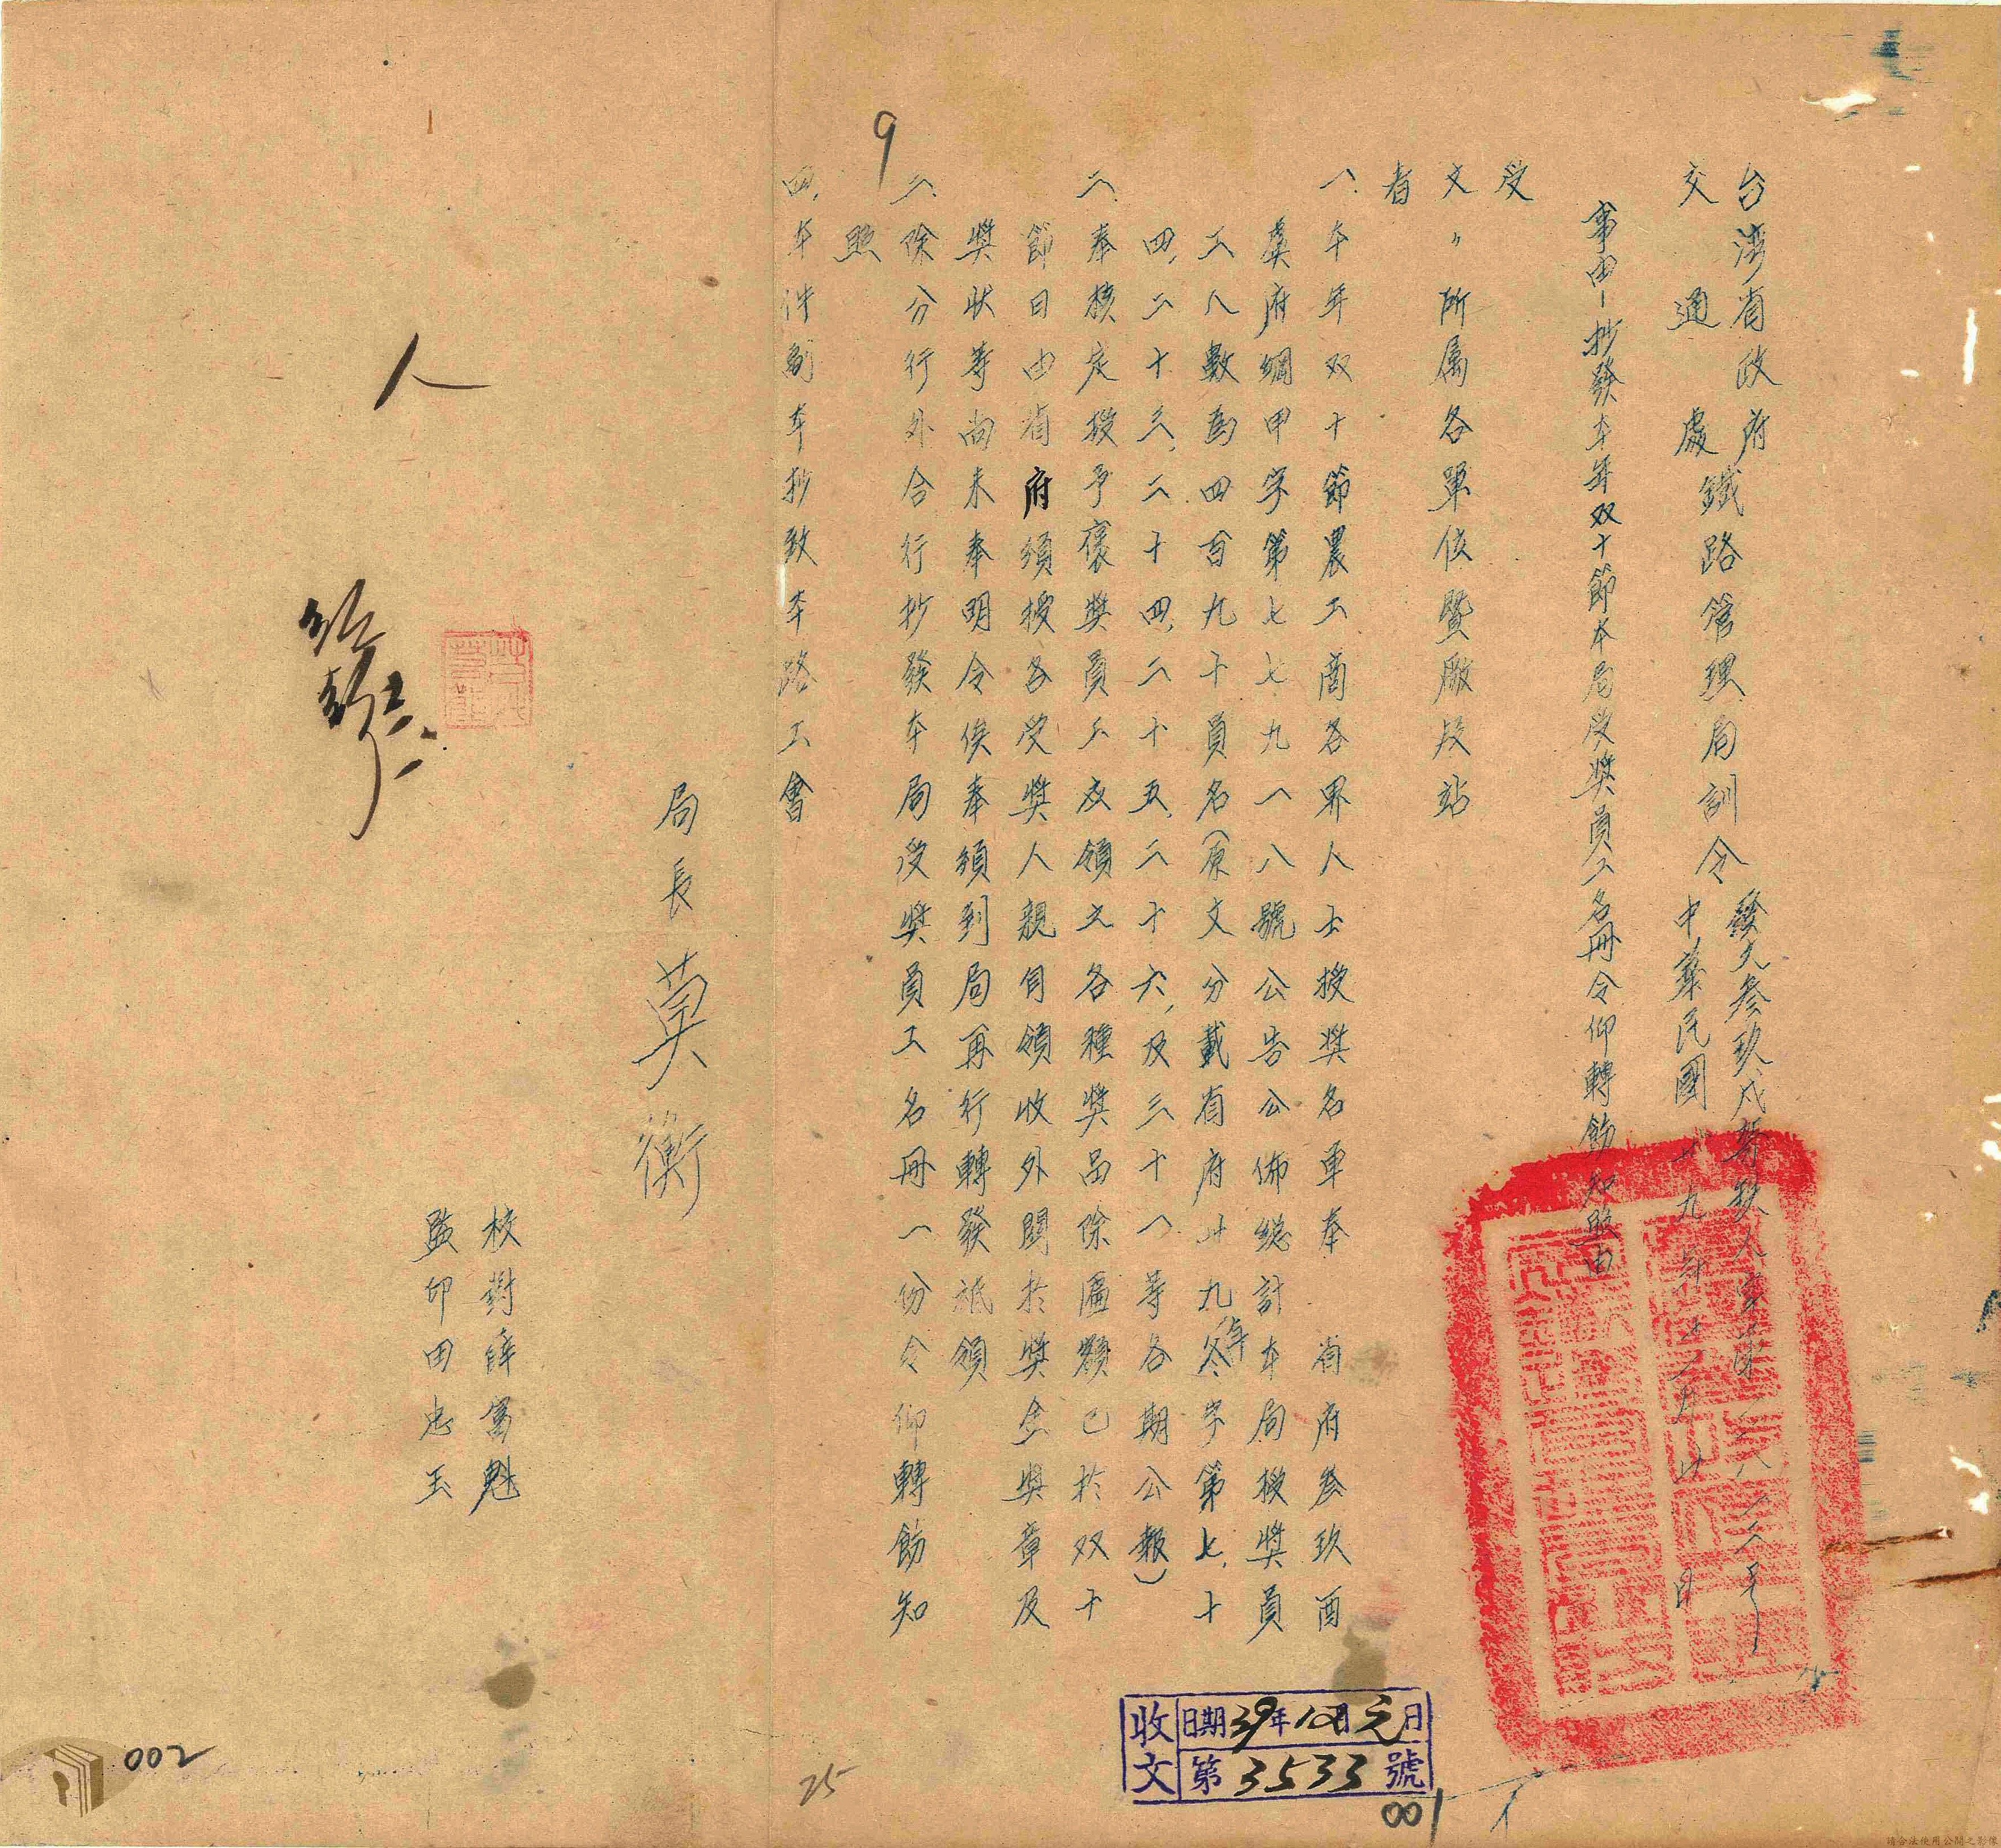 台灣省政府
交通處
鐵路管理局訓令
發文叁玖戌
中華民國卅九年十一月卅日
事由—抄發本年双十節本局受奖員工名冊令仰轉飭知照由
受
文〃所属各單位暨廠段站
者
一、本年双十節農工商各界人士授奬名单奉 省府叁玖酉
虞府綱甲字第七七九一八八號公告公佈總計本局授奬員
工人數為四百九十員名(原文分載省府卅九年冬字第七、十
四、二十三、二十四、二十五、二十六、及三十一等各期公報)
二、奉核定授予褒奬員工应領之各種奬品除匾額已於双十
節日由省府頒授各受奬人親自領收外関於奬金奬章及
奬状等尚未奉明令俟奉頒到局再行轉發祇領
三、除分行外合行抄發本局受奬員工名冊一份令仰轉飭知
照
四、本件副本抄致本路工會
局長莫衡
校對薛富魁
監印田忠玉
人
9
收文
日期39年12月元日
第3533號
001
25
002
請合法使用公開之影像